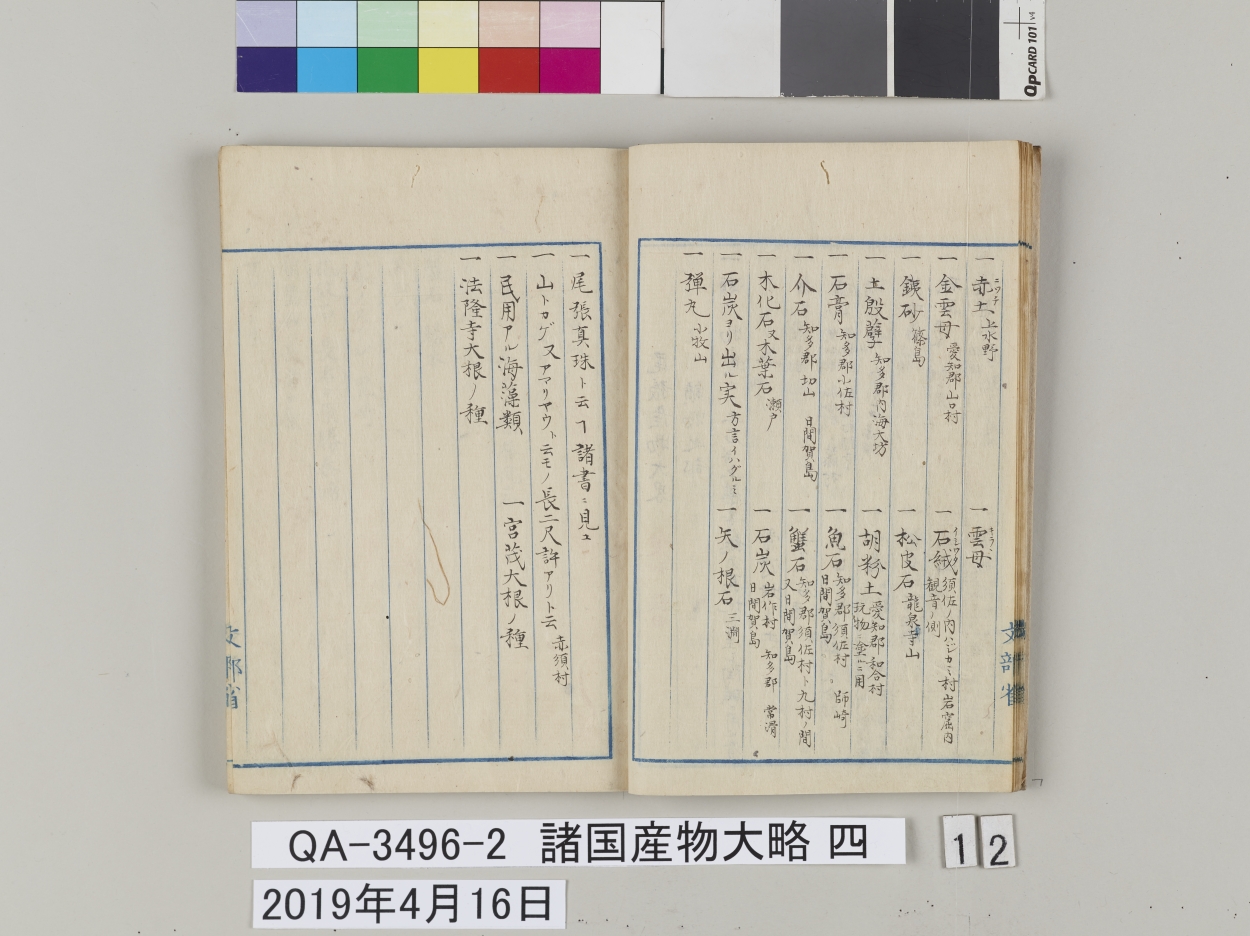 QpCARD 101 v4
一赤土 上水野
ニワチ
一雲母
キララ
一金雲母 愛知郡山口村
一石絨 須佐ノ内ハジカミ村岩窟内
観音ノ側
一銕砂 篠島
一松皮石 龍泉寺山
一土殷孽 知多郡内海大坊
一胡粉土 愛知郡和合村
玩物ニ塗ルニ用
一石膏 知多郡小佐村
一魚石 知多郡須佐村 師崎
日間賀島
一介石 知多郡切山 日間賀島
一蟹石 知多郡須佐村ト九村ノ間
又日間賀島
一木化石又木葉石 瀬戸
一石炭 岩作村 知多郡 常滑
日間賀島
一石炭ヨリ出ル実 方言イハグルミ
一矢ノ根石 三淵
一弾丸 小牧山
文部省
一尾張真珠ト云フ諸書ニ見ユ
一山トカゲスアマリヤウト云モノ長二尺許アリト云 赤須村
一民用アル海藻類
一宮茂大根ノ種
一法隆寺大根ノ種
文部省
QA-3496-2 諸国産物大略 四
12
2019年4月16日